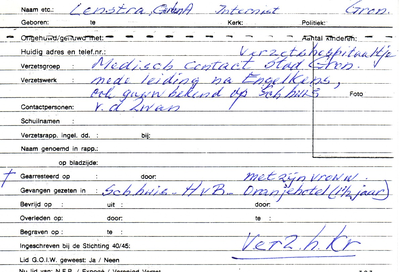 Naam etc.: Lenstra, Internist Gron.
Geboren: te Kerk: Politiek:
Ongehuwd/gehuwd met: Aantal kinderen:
Huidig adres en telef.nr.: Verzetshospitaaltje
Verzetsgroep : Medisch Contact Stad Gron.
Verzetswerk : mede leiding na Engelkens,
ook gouw bekend op Sch.huis Foto
Contactpersonen: v.d. Zwan
Schuilnaam :
Verzetsrapp. ingel. dd. : bij:
Naam genoemd in rapp.:
op bladzijde:
† Gearresteerd op : door: met zijn vrouw.
Gevangen gezeten in : Sch.huis - HvB - Oranjehotel (1½ jaar)
Bevrijd op : uit : door:
Overleden op: door: te :
Begraven op : te :
Ingeschreven bij de Stichting 40/45: Verz.h.Kr
Lid G.O.I.W. geweest: Ja / Neen